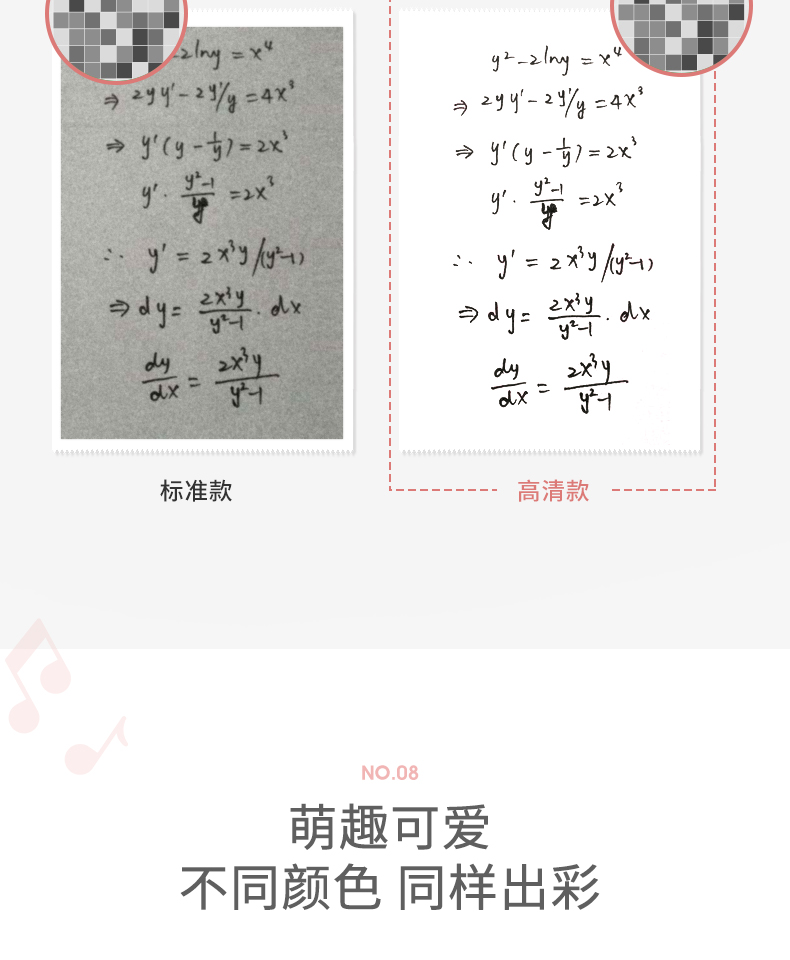 -2lny = x⁴
⇒ 2yy' - 2y'/y = 4x³
⇒ y'(y - 1/y) = 2x³
y' · (y²-1)/y = 2x³
∴ y' = 2x³y/(y²-1)
⇒ dy = 2x³y/(y²-1) · dx
dy/dx = 2x³y/(y²-1)
标准款
y² - 2lny = x⁴
⇒ 2yy' - 2y'/y = 4x³
⇒ y'(y - 1/y) = 2x³
y' · (y²-1)/y = 2x³
∴ y' = 2x³y/(y²-1)
⇒ dy = 2x³y/(y²-1) · dx
dy/dx = 2x³y/(y²-1)
高清款
NO.08
萌趣可爱
不同颜色 同样出彩